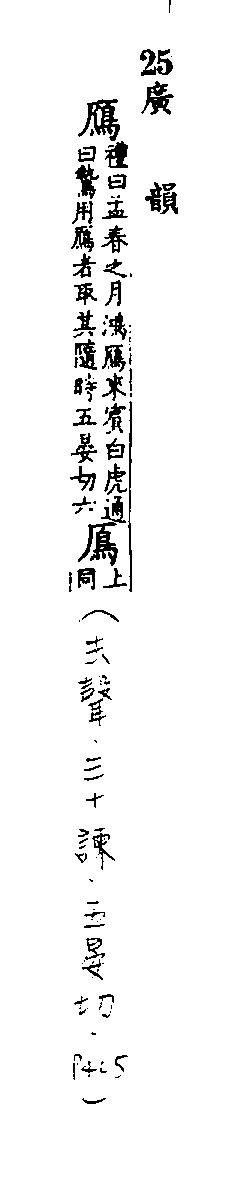 25廣韻
鴈禮曰孟春之月鴻鴈來賓白虎通
曰贄用鴈者取其隨時五晏切六
鴈上
同
(去聲．三十諫．五晏切．P405)